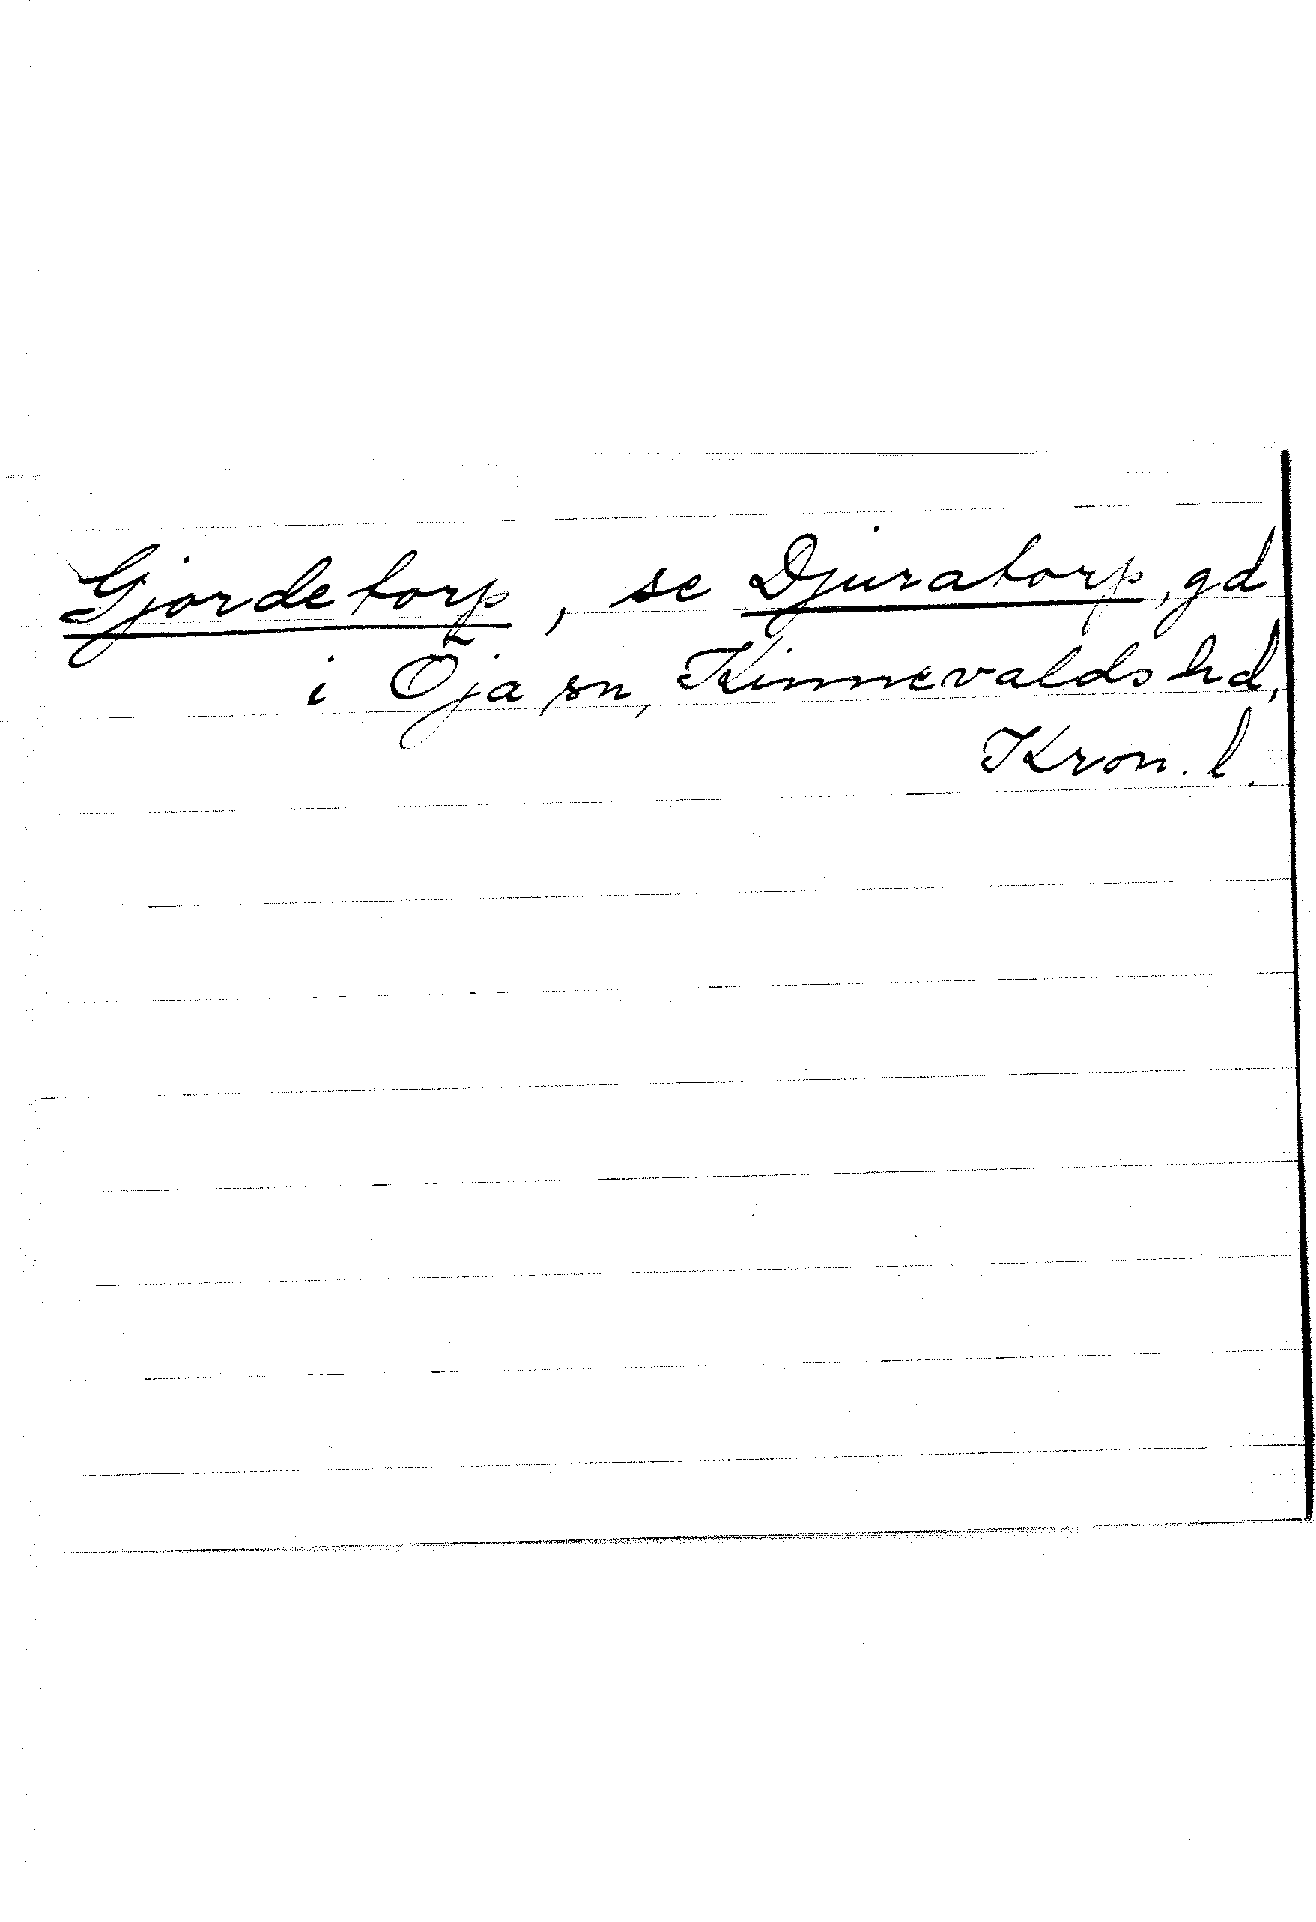 Gjordetorp, se Djuratorp, gd
i Öja sn, Kinnevalds hd,
Kron. l.